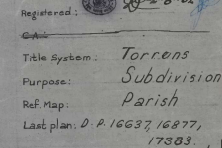 Registered:
C.A.:
Title System: Torrens
Purpose: Subdivision
Ref. Map: Parish
Last plan: D.P. 16637, 16877,
17383.